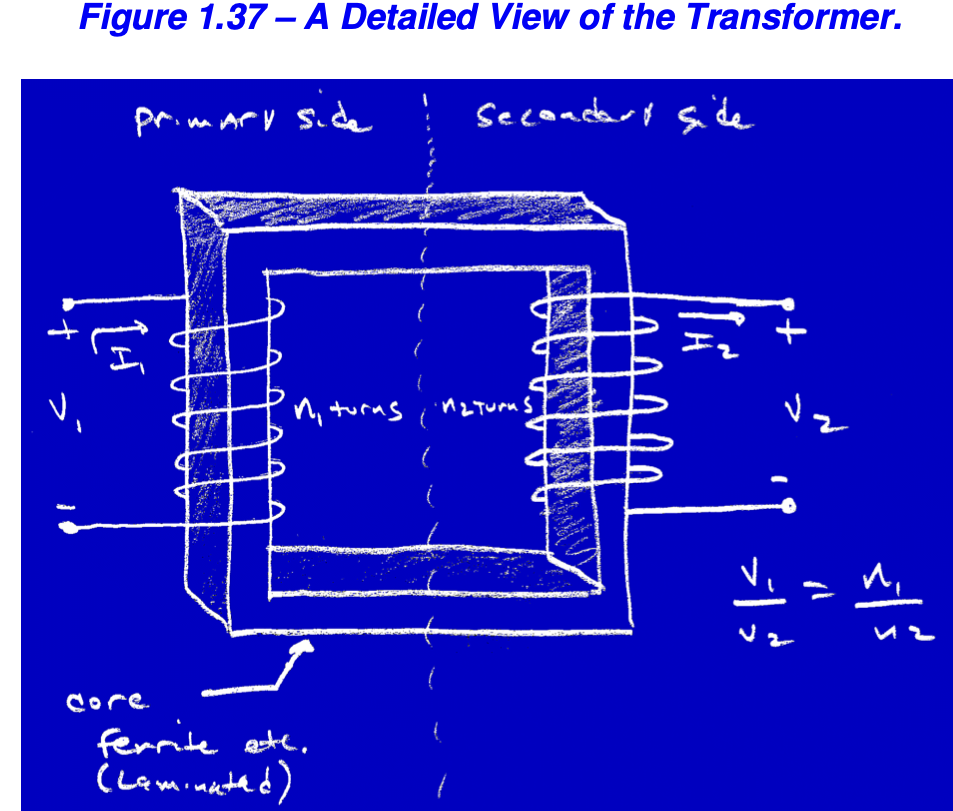 Figure 1.37 – A Detailed View of the Transformer.
primary side
secondary side
+
I₁
I₂
+
V₁
n₁ turns
n₂ turns
V₂
-
-
V₁/V₂ = n₁/n₂
core
ferrite etc.
(Laminated)